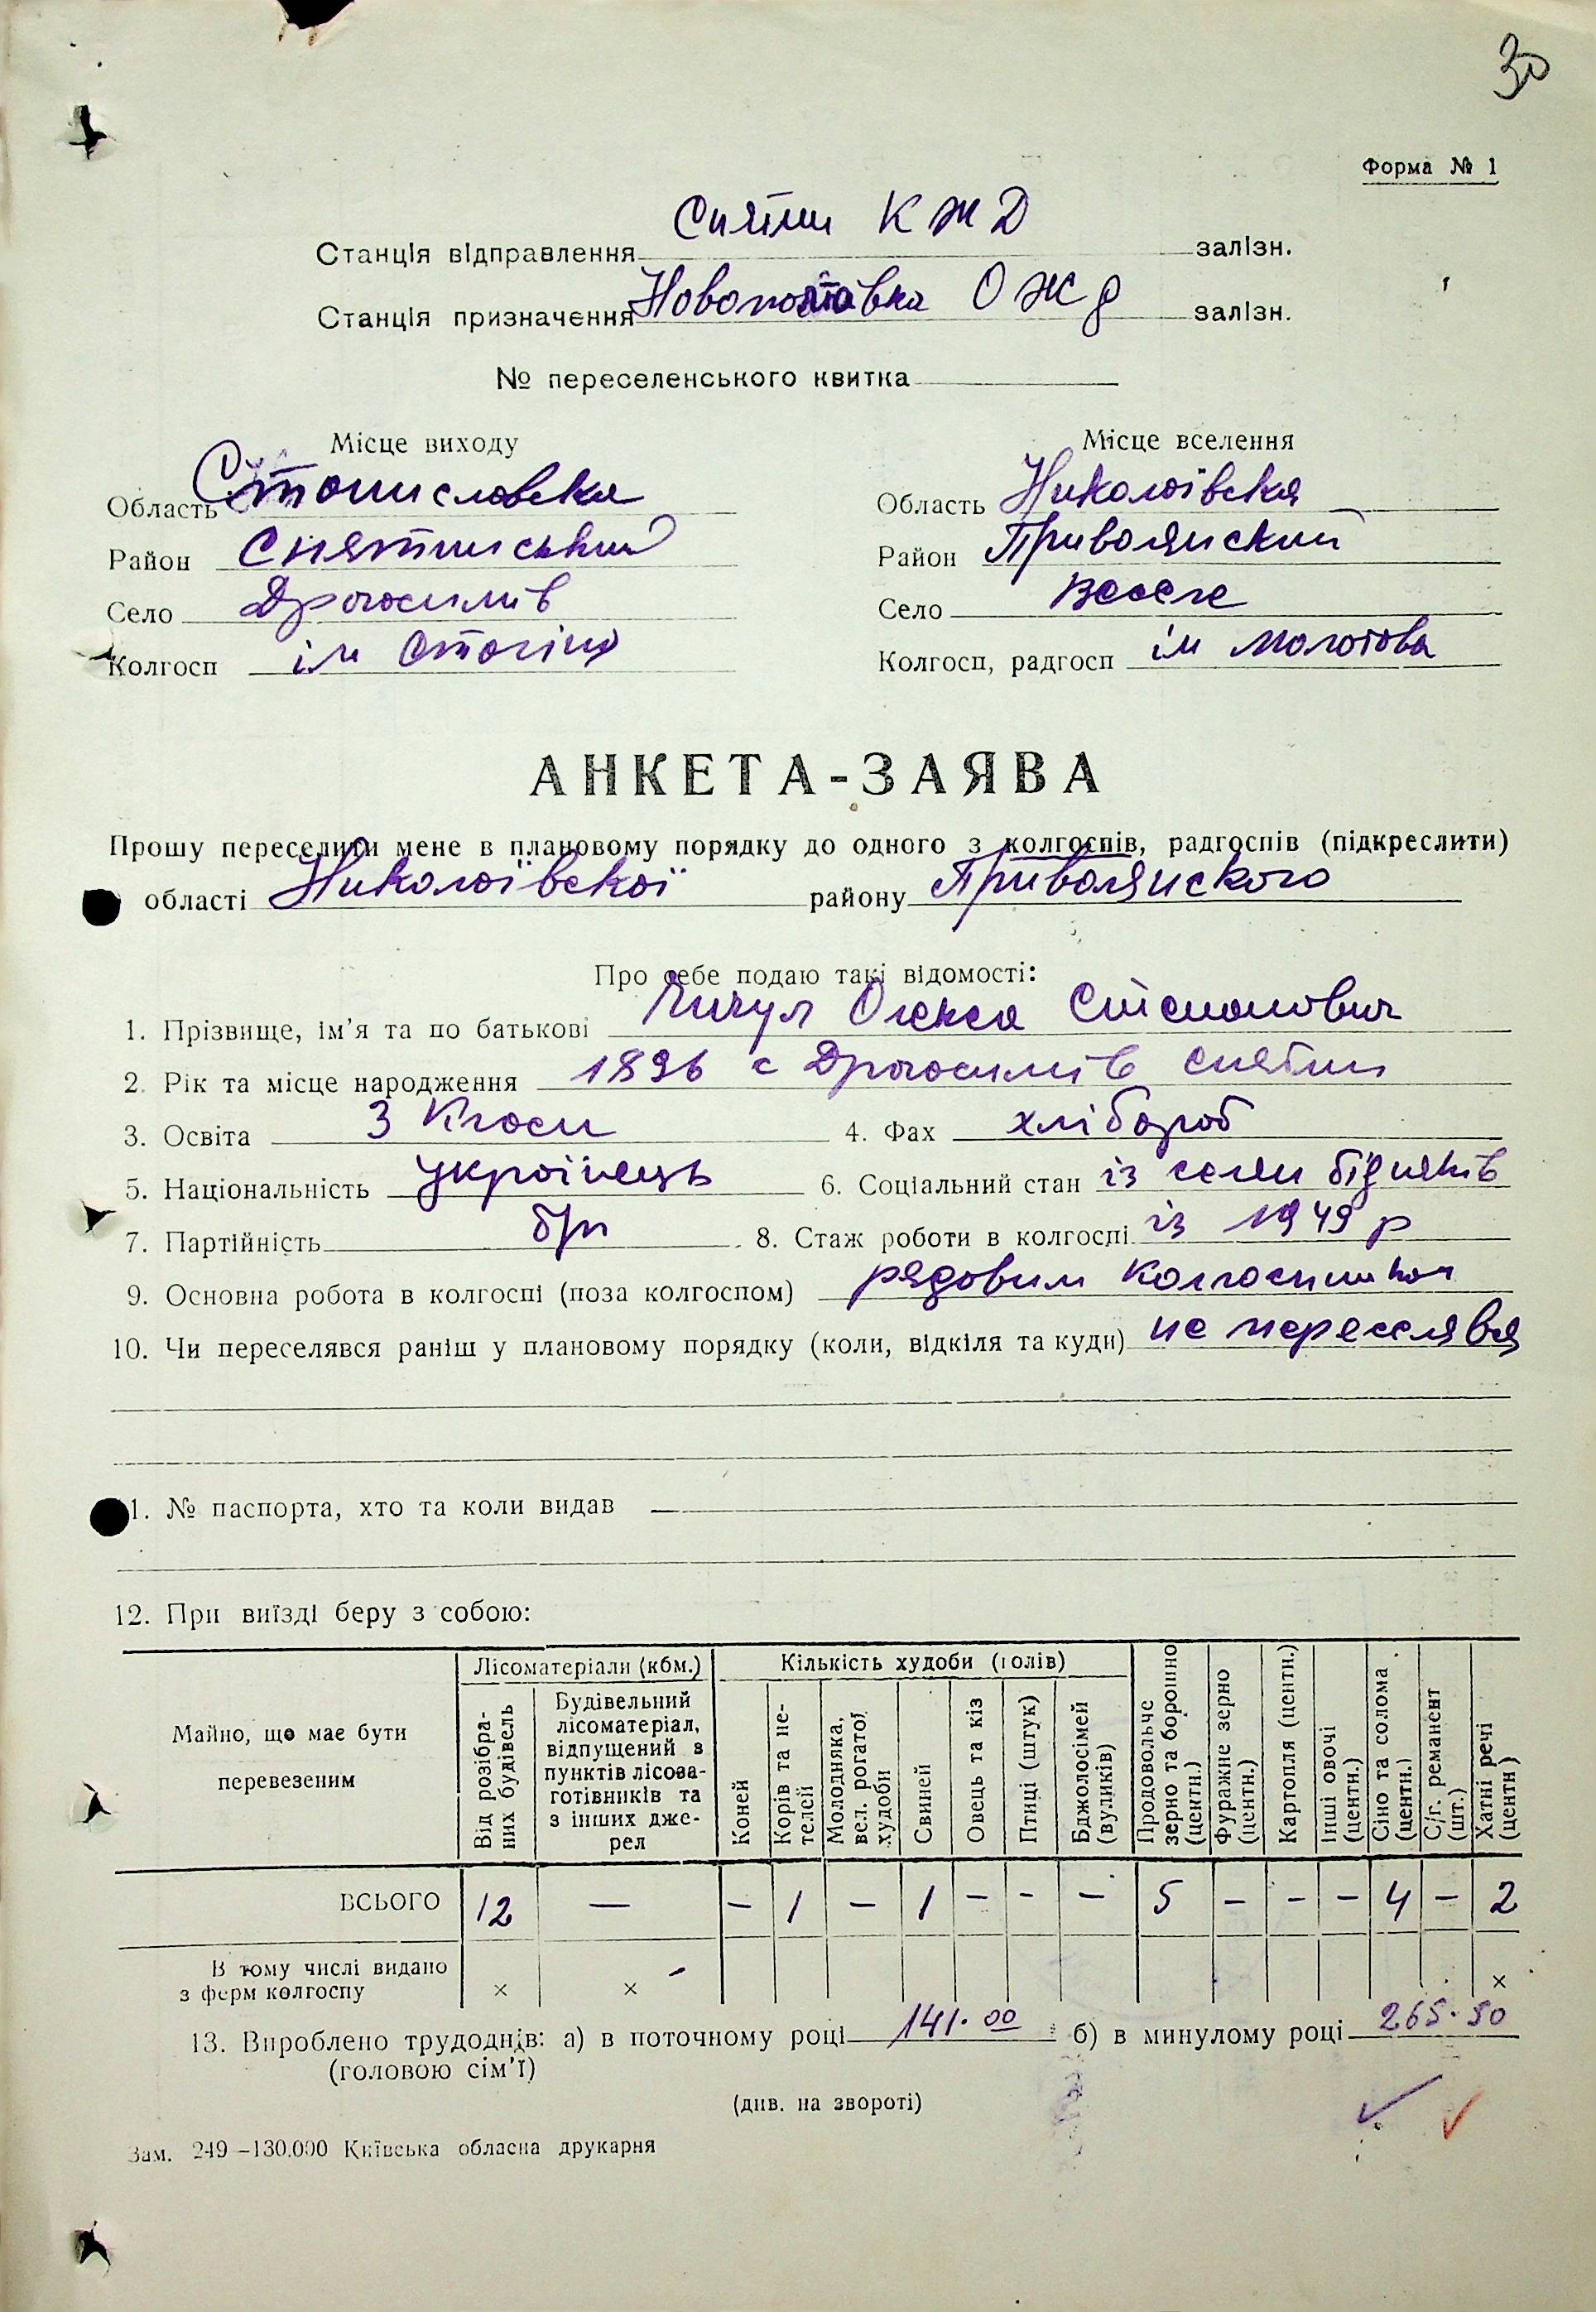 30
Форма № 1
Станція відправлення Снятин К Ж Д залізн.
Станція призначення Новополтавка О Ж Д залізн.
№ переселенського квитка
Місце виходу
Область Станиславска
Район Снятинський
Село Драгасимів
Колгосп ім Сталіна
Місце вселення
Область Николаївская
Район Привольнский
Село Веселе
Колгосп, радгосп ім Молотова
АНКЕТА-ЗАЯВА
Прошу переселити мене в плановому порядку до одного з колгоспів, радгоспів (підкреслити)
області Николаївскої району Привольнского
Про себе подаю такі відомості:
1. Прізвище, ім’я та по батькові Олекса Степанович
2. Рік та місце народження 1896 с Драгасимів Снятин
3. Освіта 3 класи 4. Фах хлібороб
5. Національність українець 6. Соціальний стан із селян бідняків
7. Партійність б/п 8. Стаж роботи в колгоспі із 1949 р
9. Основна робота в колгоспі (поза колгоспом) рядовим колгоспником
10. Чи переселявся раніш у плановому порядку (коли, відкіля та куди) не переселявся
11. № паспорта, хто та коли видав
12. При виїзді беру з собою:
Майно, що має бути перевезеним
Лісоматеріали (кбм.)
Від розібраних будівель
Будівельний лісоматеріал, відпущений з пунктів лісозаготівників та з інших джерел
Кількість худоби (голів)
Коней
Корів та нетелей
Молодняка, вел. рогатої худоби
Свиней
Овець та кіз
Птиці (штук)
Бджолосімей (вуликів)
Продовольче зерно та борошно (центн.)
Фуражне зерно (центн.)
Картопля (центн.)
Інші овочі (центн.)
Сіно та солома (центн.)
С/г. реманент (шт.)
Хатні речі (центн)
ВСЬОГО 12 — — 1 — 1 — — — 5 — — — 4 — 2
В тому числі видано з ферм колгоспу × × ×
13. Вироблено трудоднів: а) в поточному році 141.00 б) в минулому році 265.50
(головою сім’ї)
(див. на звороті)
Зам. 249—130.000 Київська обласна друкарня